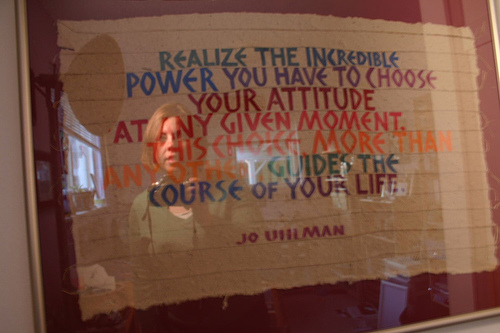 REALIZE THE INCREDIBLE
POWER YOU HAVE TO CHOOSE
YOUR ATTITUDE
AT ANY GIVEN MOMENT.
THIS CHOICE, MORE THAN
ANY OTHER, GUIDES THE
COURSE OF YOUR LIFE.
JO UHLMAN